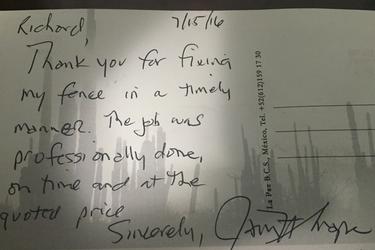 Richard,
7/15/16
Thank you for fixing
my fence in a timely
manner. The job was
professionally done,
on time and at the
quoted price
Sincerely,
La Paz B.C.S., México, Tel. +52(612)159 17 30